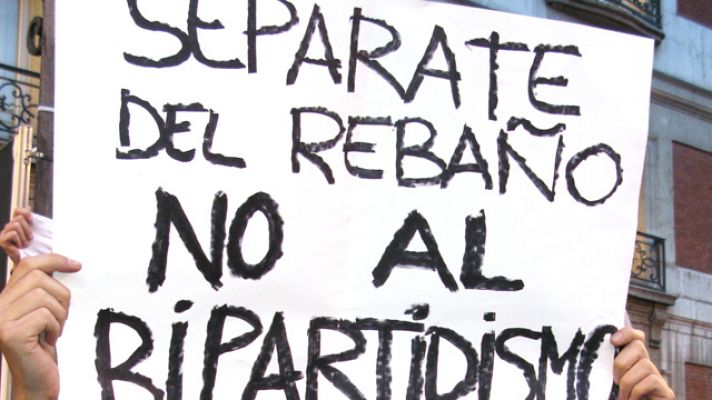 SEPARATE
DEL REBAÑO
NO AL
BIPARTIDISMO